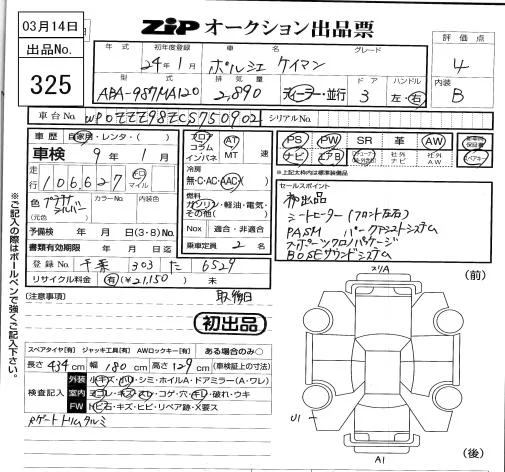 03月14日
ZIP オークション出品票
出品No.
325
年式 初年度登録 車名 グレード
24年1月 ポルシェ ケイマン
型式 排気量 ドア ハンドル
ABA-987MA120 2,890 ディーラー・並行 3 左・右
評価点
4
内装
B
車台No. WP0ZZZ98ZCS750902 シリアルNo.
車歴 自家用・レンタ・( )
車検 9年1月
走行 106,627 キロ マイル
色 プラチナシルバー カラーNo. 内装色
(元色)
予備検 年 月 日(3・8)No.
書類有効期限 年 月 日迄
登録No. 千葉 303 た 6529
リサイクル料金 有(¥21,150) 未
フロア コラム インパネ
AT MT 速
冷房
無・C・AC・AAC
燃料
ガソリン・軽油・電気・その他( )
Nox 適合・非適合
乗車定員 2名
PS PW SR 革 AW
ナビ エアB 社外ナビ 社外AW
※上記太枠内は標準装備品
セールスポイント
初出品
シートヒーター(フロント左右)
PASM パークアシストシステム
スポーツクロノパッケージ
BOSEサウンドシステム
(注意事項)
取扱日
初出品
スペアタイヤ[有] ジャッキ工具[有] AWロックキー[有] ある場合のみ○
長さ 434cm 幅 180cm 高さ 129cm (車検証上の寸法)
検査記入
外装 小キズ・凹・シミ・ホイルA・ドアミラー(A・ワレ)
室内 ヨゴレ・キズ・スレ・コゲ・穴・キレ・破れ・ウキ
FW トビ石・キズ・ヒビ・リペア跡・X要ス
Rゲートトリムタルミ
スリA
(前)
U1
A1
(後)
※ご記入の際はボールペンで強くご記入下さい。